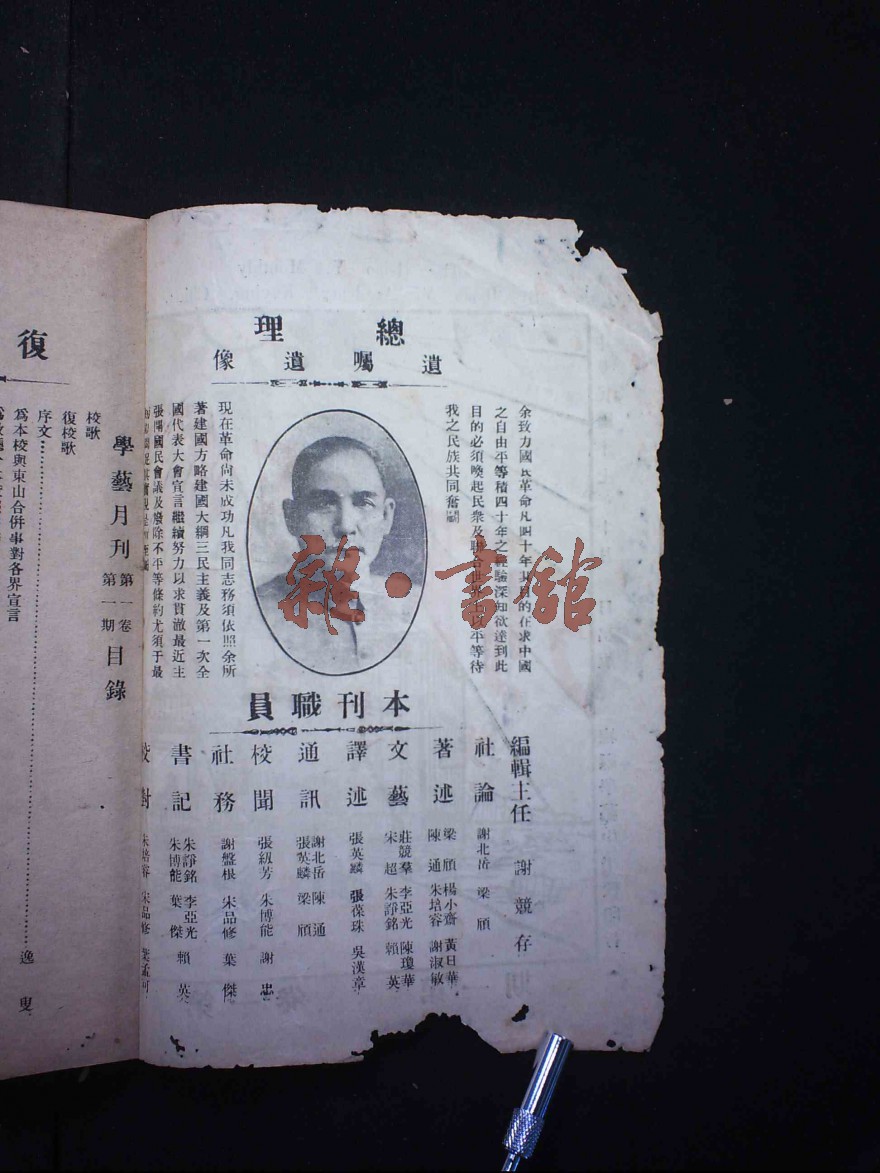 總理
遺囑遺像
余致力國民革命凡四十年其目的在求中國
之自由平等積四十年之經驗深知欲達到此
目的必須喚起民衆及聯合世界上以平等待
我之民族共同奮鬬
現在革命尚未成功凡我同志務須依照余所
著建國方略建國大綱三民主義及第一次全
國代表大會宣言繼續努力以求貫澈最近主
張開國民會議及廢除不平等條約尤須于最
雜·書館
本刊職員
編輯主任 謝競存
社論 謝北岳 梁頎
著述 梁頎 楊小齋 黃日華
陳通 朱培容 謝淑敏
文藝 莊競羣 李亞光 陳瓊華
宋超 朱諍銘 賴英
譯述 張英麟 張葆珠 吳漢章
通訊 謝北岳 陳通
張英麟 梁頎
校聞 張級芳 朱博能 謝忠
社務 謝盤根 宋品修 葉傑
書記 朱諍銘 李亞光
朱博能 葉傑 賴英
校對 朱培容 宋品修 葉孟可
復
學藝月刊 第一卷 第一期 目錄
校歌
復校歌
序文 逸叟
爲本校與東山合併事對各界宣言